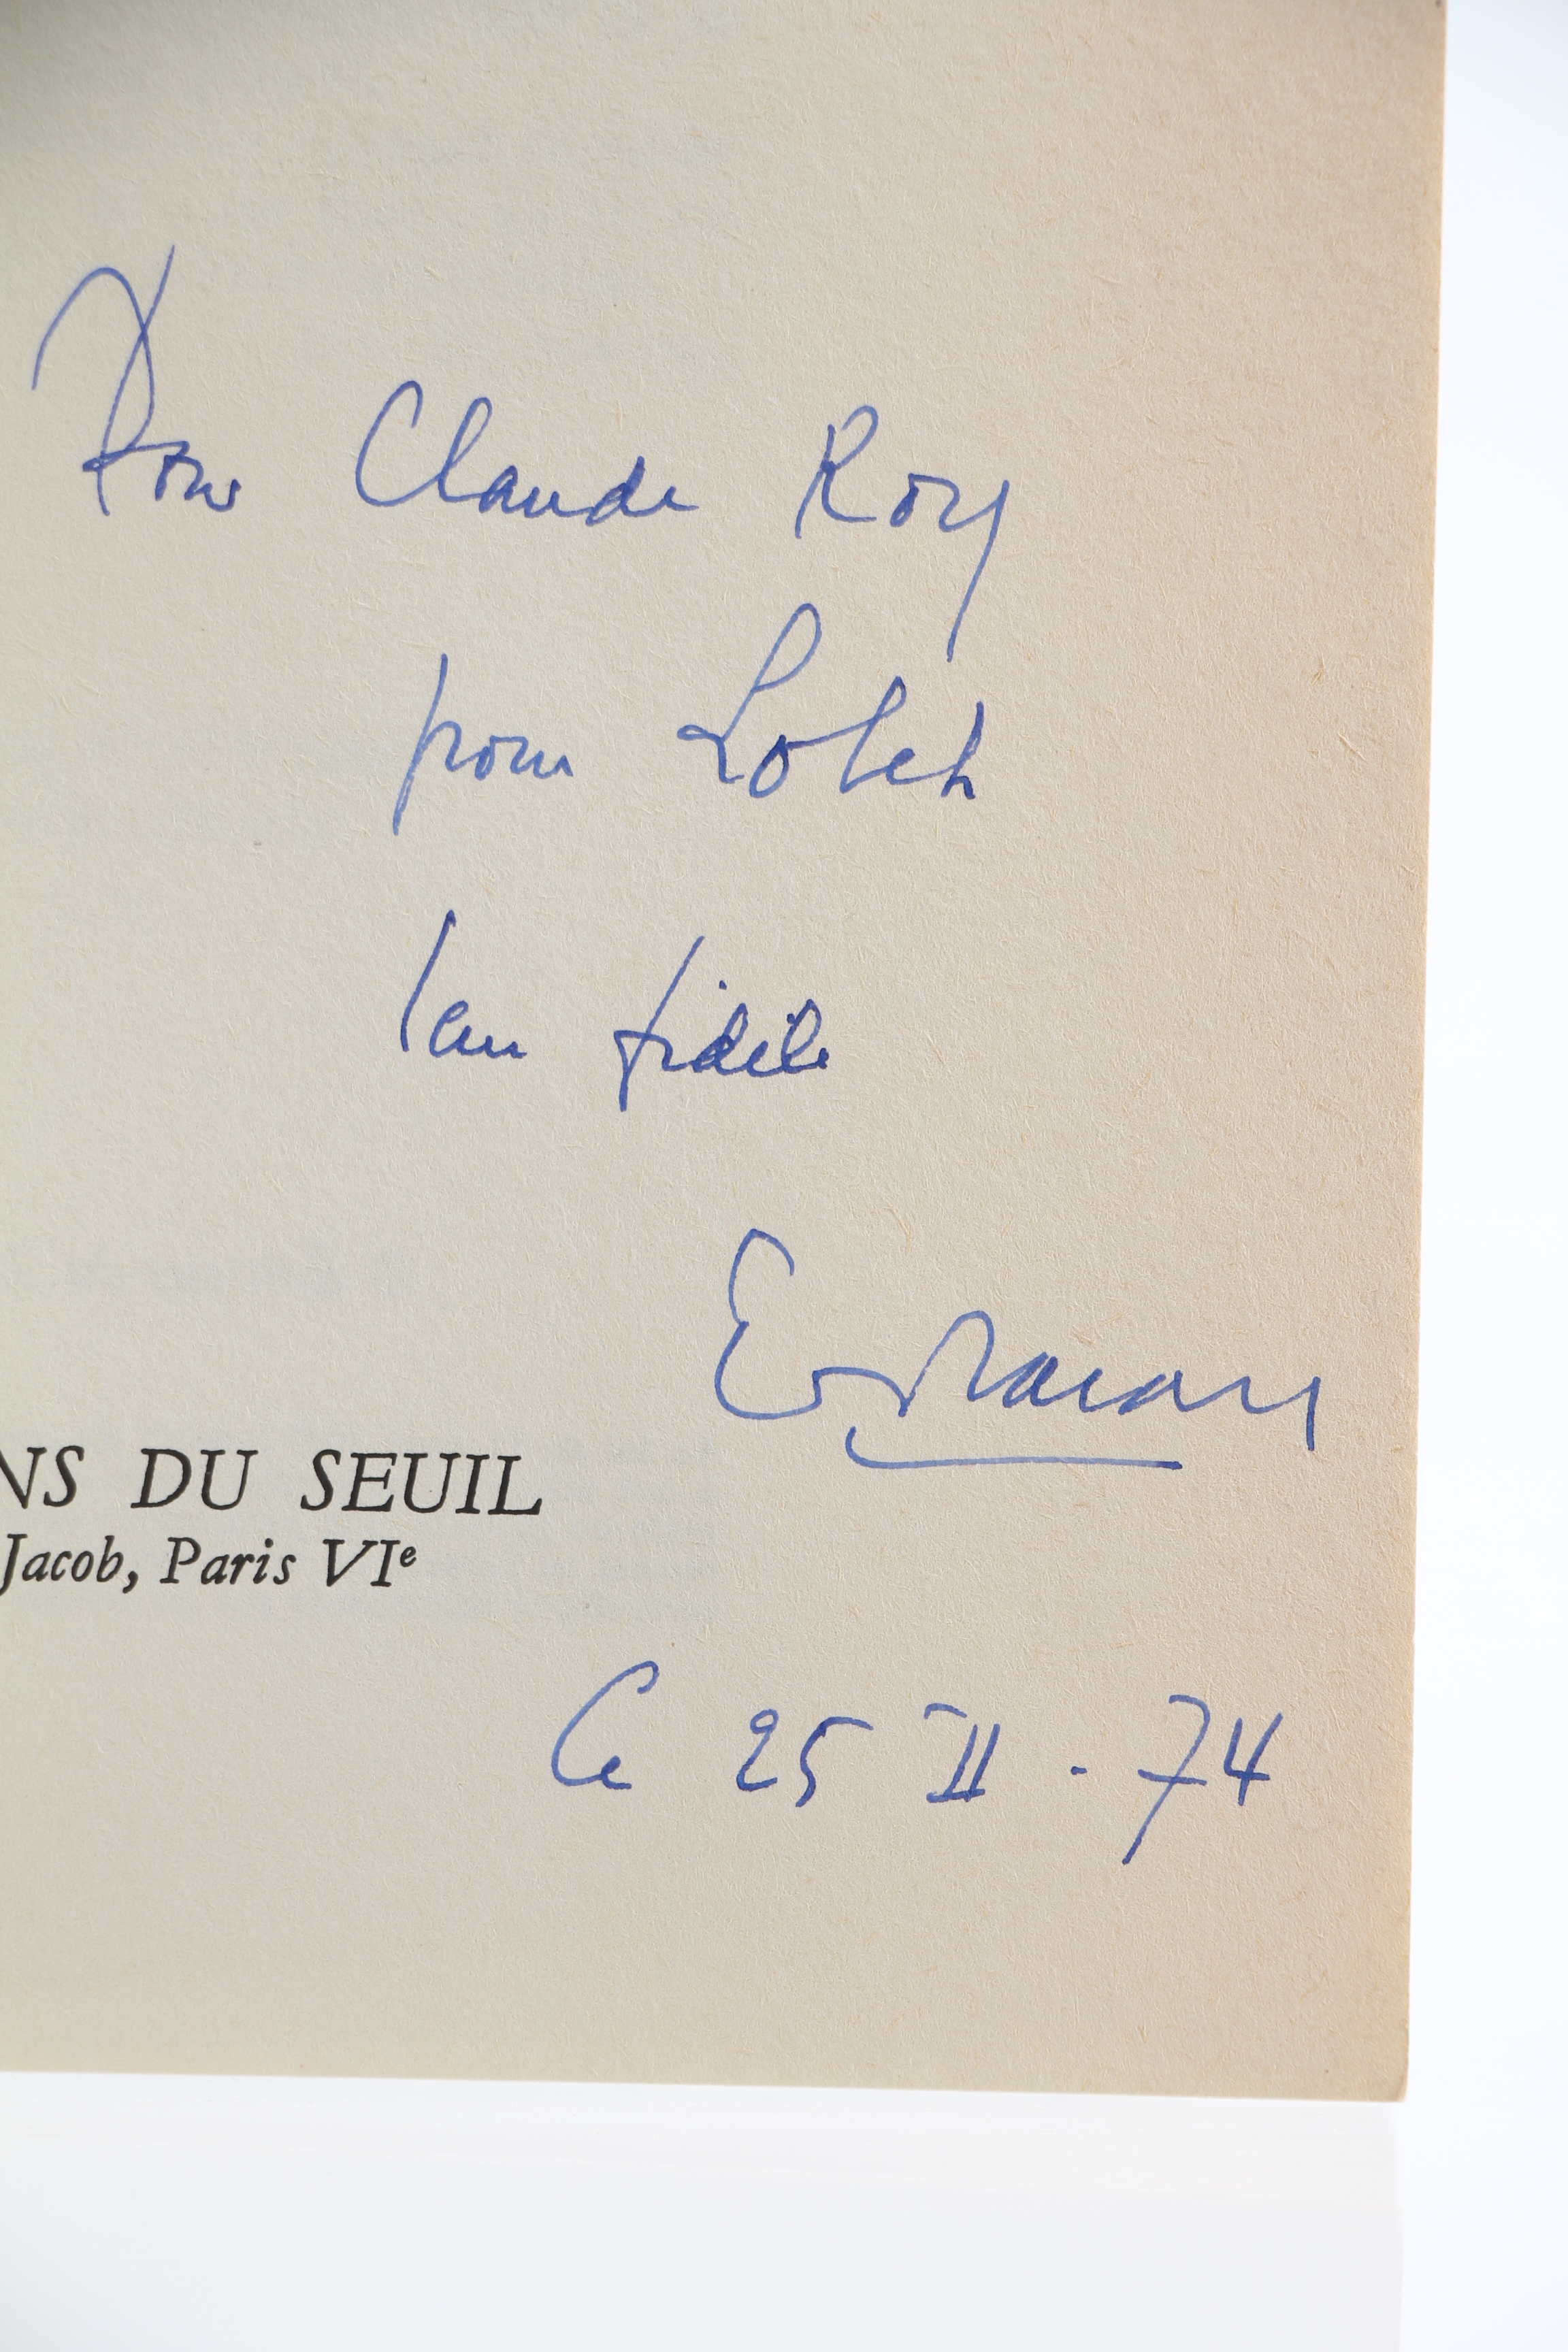 Pour Claude Roy
pour Loleh
leur fidèle
NS DU SEUIL
Jacob, Paris VIe
Ce 25 II . 74